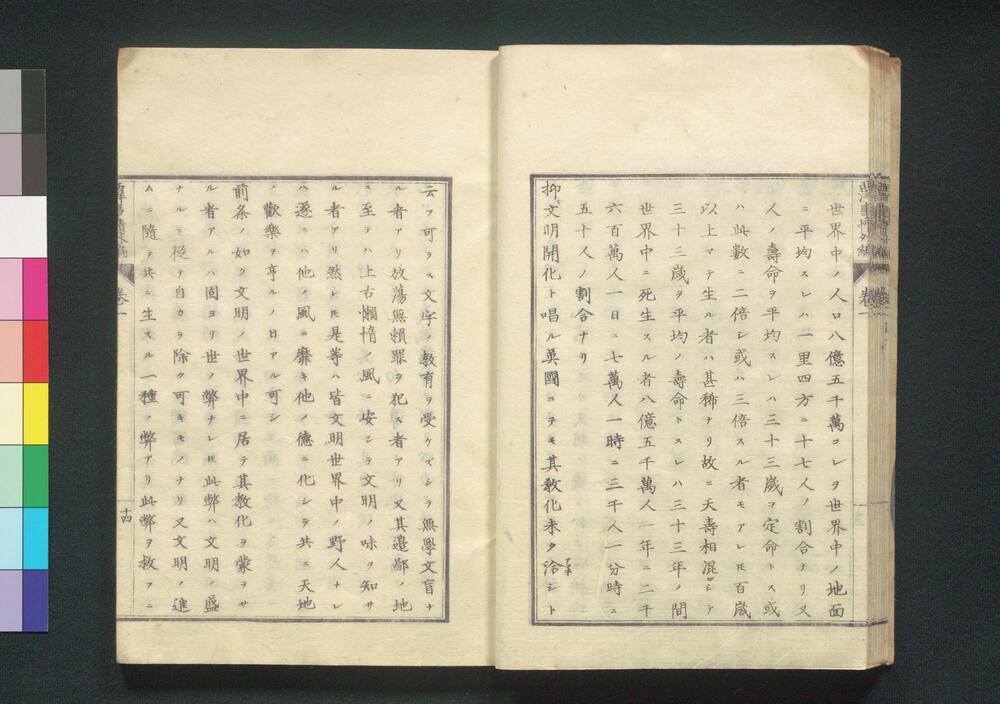 世界中ノ人口八億五千萬コレヲ世界中ノ地面
ニ平均スレハ一里四方ニ十七人ノ割合ナリ又
人ノ壽命ヲ平均スレハ三十三歳ヲ定命トス或
ハ此數ニ二倍シ或ハ三倍スル者モアレ𪜈百歳
以上マテ生ル者ハ甚稀ナリ故ニ夭壽相混シテ
三十三歳ヲ平均ノ壽命トスレハ三十三年ノ間
世界中ニ死生スル者八億五千萬人一年ニ二千
六百萬人一日ニ七萬人一時ニ三千人一分時ニ
五十人ノ割合ナリ
抑文明開化ト唱ル英國ニテモ其教化未タ洽シト
云フ可ラス文字ノ教育ヲ受ケスシテ無學文盲ナ
ル者アリ放蕩無頼罪ヲ犯ス者アリ又其邉鄙ノ地
ニ至テハ上古懶惰ノ風ニ安シテ文明ノ味ヲ知サ
ル者アリ然レ𪜈是等ハ皆文明世界中ノ野人ナレ
ハ遂ニハ他ノ風ニ靡キ他ノ德ニ化シテ共ニ天地
ノ歡樂ヲ亨ルノ日アル可シ
前条ノ如ク文明ノ世界中ニ居テ其教化ヲ蒙ラサ
ル者アルハ固ヨリ世ノ弊ナレ𪜈此弊ハ文明ノ盛
ナルニ從テ自カラ除ク可キモノナリ又文明ノ進
ムニ隨テ共ニ生スル一種ノ弊アリ此弊ヲ救フニ
卷一
十四